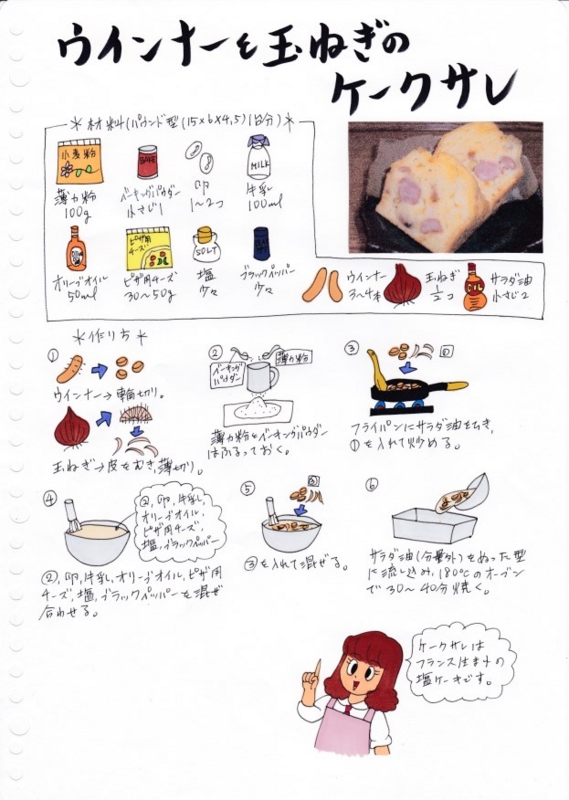 ウインナーと玉ねぎの
ケークサレ
＊材料(パウンド型(15×6×4.5)1台分)＊
小麦粉
BAKE
MILK
薄力粉
100g
ベーキングパウダー
小さじ1
卵
1～2コ
牛乳
100ml
ピザ用
チーズ
SOLT
オリーブオイル
50ml
ピザ用チーズ
30～50g
塩
少々
ブラックペッパー
少々
ウインナー
3～4本
玉ねぎ
1/2コ
OIL
サラダ油
小さじ2
＊作り方＊
①
ウインナー→輪切り。
玉ねぎ→皮をむき、薄切り。
②
ベーキングパウダー
薄力粉
薄力粉とベーキングパウダー
はふるっておく。
③
①
フライパンにサラダ油をひき、
①を入れて炒める。
④
②、卵、牛乳、
オリーブオイル、
ピザ用チーズ、
塩、ブラックペッパー
②、卵、牛乳、オリーブオイル、ピザ用
チーズ、塩、ブラックペッパーを混ぜ
合わせる。
⑤
③
③を入れて混ぜる。
⑥
サラダ油(分量外)をぬった型
に流し込み、180℃のオーブン
で30～40分焼く。
ケークサレは
フランス生まれの
塩ケーキです。